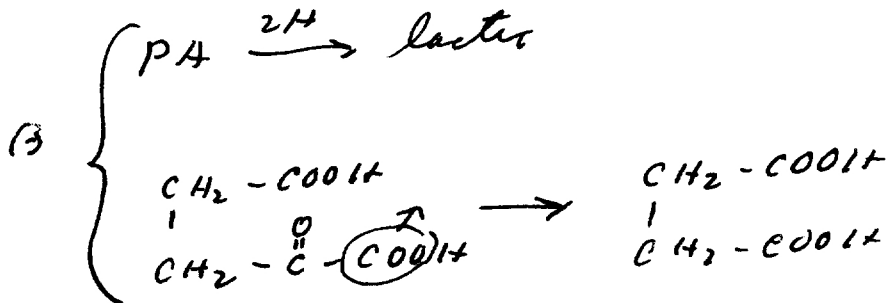 PA 2H → lactic
(3 {
CH2 - COOH
|
CH2 - C(=O) - COOH → CH2 - COOH
|
CH2 - COOH